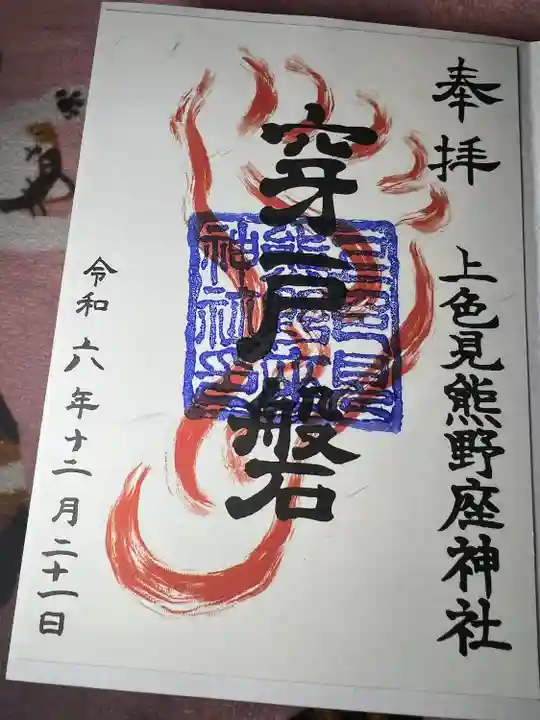 奉拝
上色見熊野座神社
穿戸磐
令和六年十二月二十一日